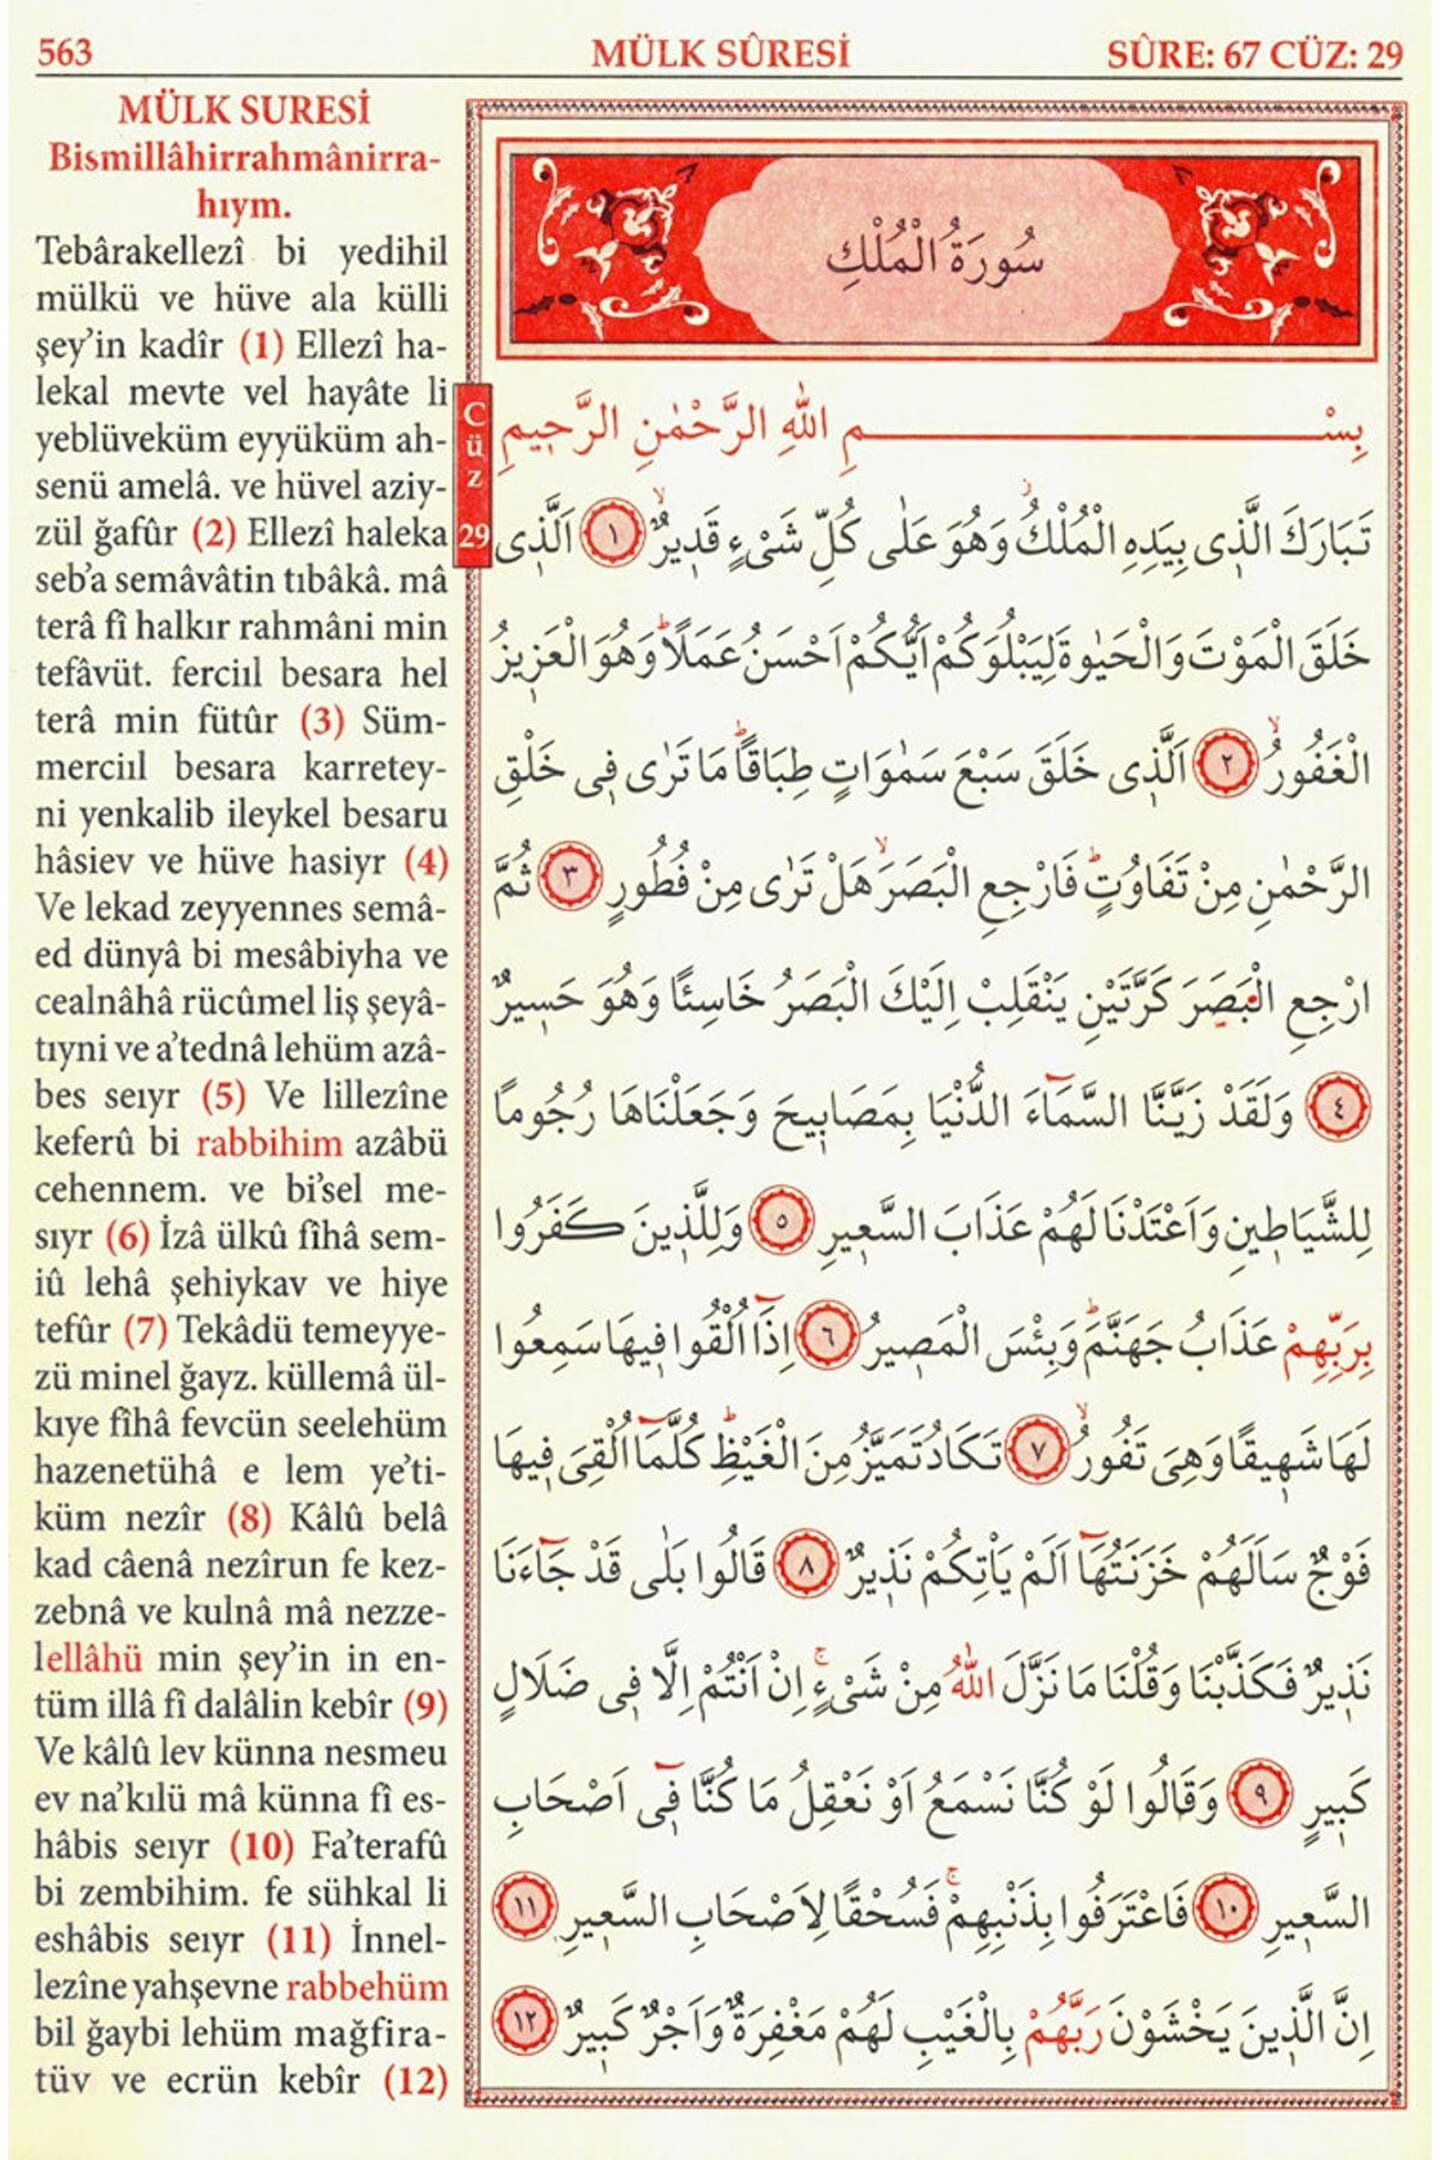 563
MÜLK SÛRESİ
SÛRE: 67 CÜZ: 29
MÜLK SURESİ
Bismillâhirrahmânirra-
hıym.
Tebârakellezî bi yedihil
mülkü ve hüve ala külli
şey’in kadîr (1) Ellezî ha-
lekal mevte vel hayâte li
yeblüveküm eyyüküm ah-
senü amelâ. ve hüvel aziy-
zül ğafûr (2) Ellezî haleka
seb’a semâvâtin tıbâkâ. mâ
terâ fî halkır rahmâni min
tefâvüt. ferciıl besara hel
terâ min fütûr (3) Süm-
merciıl besara karretey-
ni yenkalib ileykel besaru
hâsiev ve hüve hasiyr (4)
Ve lekad zeyyennes semâ-
ed dünyâ bi mesâbiyha ve
cealnâhâ rücûmel liş şeyâ-
tıyni ve a’tednâ lehüm azâ-
bes seıyr (5) Ve lillezîne
keferû bi rabbihim azâbü
cehennem. ve bi’sel me-
sıyr (6) İzâ ülkû fîhâ sem-
iû lehâ şehiykav ve hiye
tefûr (7) Tekâdü temeyye-
zü minel ğayz. küllemâ ül-
kıye fîhâ fevcün seelehüm
hazenetühâ e lem ye’ti-
küm nezîr (8) Kâlû belâ
kad câenâ nezîrun fe kez-
zebnâ ve kulnâ mâ nezze-
lellâhü min şey’in in en-
tüm illâ fî dalâlin kebîr (9)
Ve kâlû lev künna nesmeu
ev na’kılü mâ künna fî es-
hâbis seıyr (10) Fa’terafû
bi zembihim. fe sühkal li
eshâbis seıyr (11) İnnel-
lezîne yahşevne rabbehüm
bil ğaybi lehüm mağfira-
tüv ve ecrün kebîr (12)
Cüz 29
سُورَةُ الْمُلْكِ
بِسْمِ اللّٰهِ الرَّحْمٰنِ الرَّحٖيمِ
تَبَارَكَ الَّذٖى بِيَدِهِ الْمُلْكُؗ وَهُوَ عَلٰى كُلِّ شَىْءٍ قَدٖيرٌۙ ١ اَلَّذٖى
خَلَقَ الْمَوْتَ وَالْحَيٰوةَ لِيَبْلُوَكُمْ اَيُّكُمْ اَحْسَنُ عَمَلًاؕ وَهُوَ الْعَزٖيزُ
الْغَفُورُۙ ٢ اَلَّذٖى خَلَقَ سَبْعَ سَمٰوَاتٍ طِبَاقًاؕ مَا تَرٰى فٖى خَلْقِ
الرَّحْمٰنِ مِنْ تَفَاوُتٍؕ فَارْجِعِ الْبَصَرَۙ هَلْ تَرٰى مِنْ فُطُورٍ ٣ ثُمَّ
ارْجِعِ الْبَصَرَ كَرَّتَيْنِ يَنْقَلِبْ اِلَيْكَ الْبَصَرُ خَاسِئًا وَهُوَ حَسٖيرٌ
٤ وَلَقَدْ زَيَّنَّا السَّمَٓاءَ الدُّنْيَا بِمَصَابٖيحَ وَجَعَلْنَاهَا رُجُومًا
لِلشَّيَاطٖينِ وَاَعْتَدْنَا لَهُمْ عَذَابَ السَّعٖيرِ ٥ وَلِلَّذٖينَ كَفَرُوا
بِرَبِّهِمْ عَذَابُ جَهَنَّمَؕ وَبِئْسَ الْمَصٖيرُ ٦ اِذَٓا اُلْقُوا فٖيهَا سَمِعُوا
لَهَا شَهٖيقًا وَهِىَ تَفُورُۙ ٧ تَكَادُ تَمَيَّزُ مِنَ الْغَيْظِؕ كُلَّمَٓا اُلْقِىَ فٖيهَا
فَوْجٌ سَاَلَهُمْ خَزَنَتُهَٓا اَلَمْ يَاْتِكُمْ نَذٖيرٌ ٨ قَالُوا بَلٰى قَدْ جَٓاءَنَا
نَذٖيرٌ فَكَذَّبْنَا وَقُلْنَا مَا نَزَّلَ اللّٰهُ مِنْ شَىْءٍۚ اِنْ اَنْتُمْ اِلَّا فٖى ضَلَالٍ
كَبٖيرٍ ٩ وَقَالُوا لَوْ كُنَّا نَسْمَعُ اَوْ نَعْقِلُ مَا كُنَّا فٖٓى اَصْحَابِ
السَّعٖيرِ ١٠ فَاعْتَرَفُوا بِذَنْبِهِمْۚ فَسُحْقًا لِاَصْحَابِ السَّعٖيرِ ١١
اِنَّ الَّذٖينَ يَخْشَوْنَ رَبَّهُمْ بِالْغَيْبِ لَهُمْ مَغْفِرَةٌ وَاَجْرٌ كَبٖيرٌ ١٢